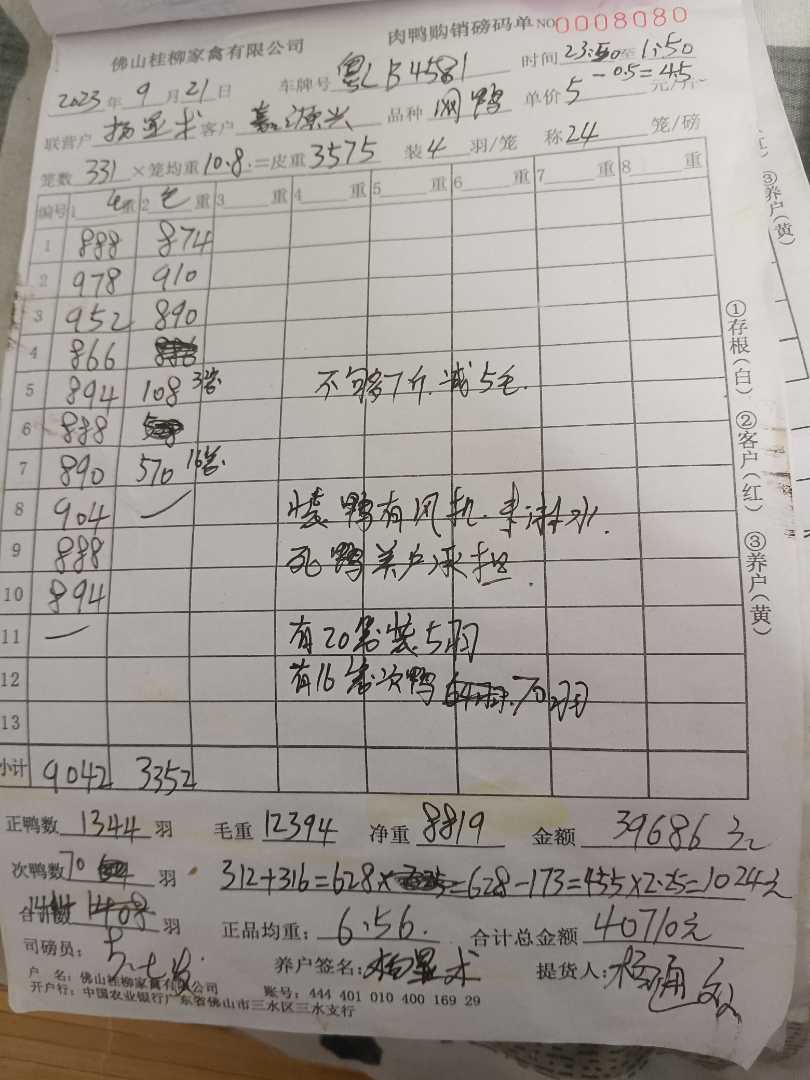 佛山桂柳家禽有限公司 肉鸭购销磅码单 NO 0008080
2023年9月21日 车牌号 粤L B4581 时间 23:50至1:50
联营户 杨显术 客户 嘉源兴 品种 网鸭 单价 5-0.5=4.5 元/斤
笼数 331 ×笼均重 10.8 =皮重 3575 装 4 羽/笼 称 24 笼/磅
编号 1 毛重 2 毛重 3 重 4 重 5 重 6 重 7 重 8 重
1 888 874
2 978 910
3 952 890
4 866
5 894 108 3笼 不够7斤.减5毛.
6 888
7 890 570 16笼.
8 904 — 装鸭有风机.未淋水.
9 888 死鸭养户承担.
10 894
11 — 有20笼装5羽
12 有16笼次鸭 70羽
13
小计 9042 3352
正鸭数 1344 羽 毛重 12394 净重 8819 金额 39686元
次鸭数 70 羽 312+316=628 =628-173=455×2.25=1024元
合计数 1414 羽 正品均重: 6.56. 合计总金额 40710元
司磅员: 养户签名: 杨显术 提货人: 杨通
户 名: 佛山桂柳家禽有限公司 账号: 444 401 010 400 169 29
开户行: 中国农业银行广东省佛山市三水区三水支行
①存根(白) ②客户(红) ③养户(黄)
③养户(黄)